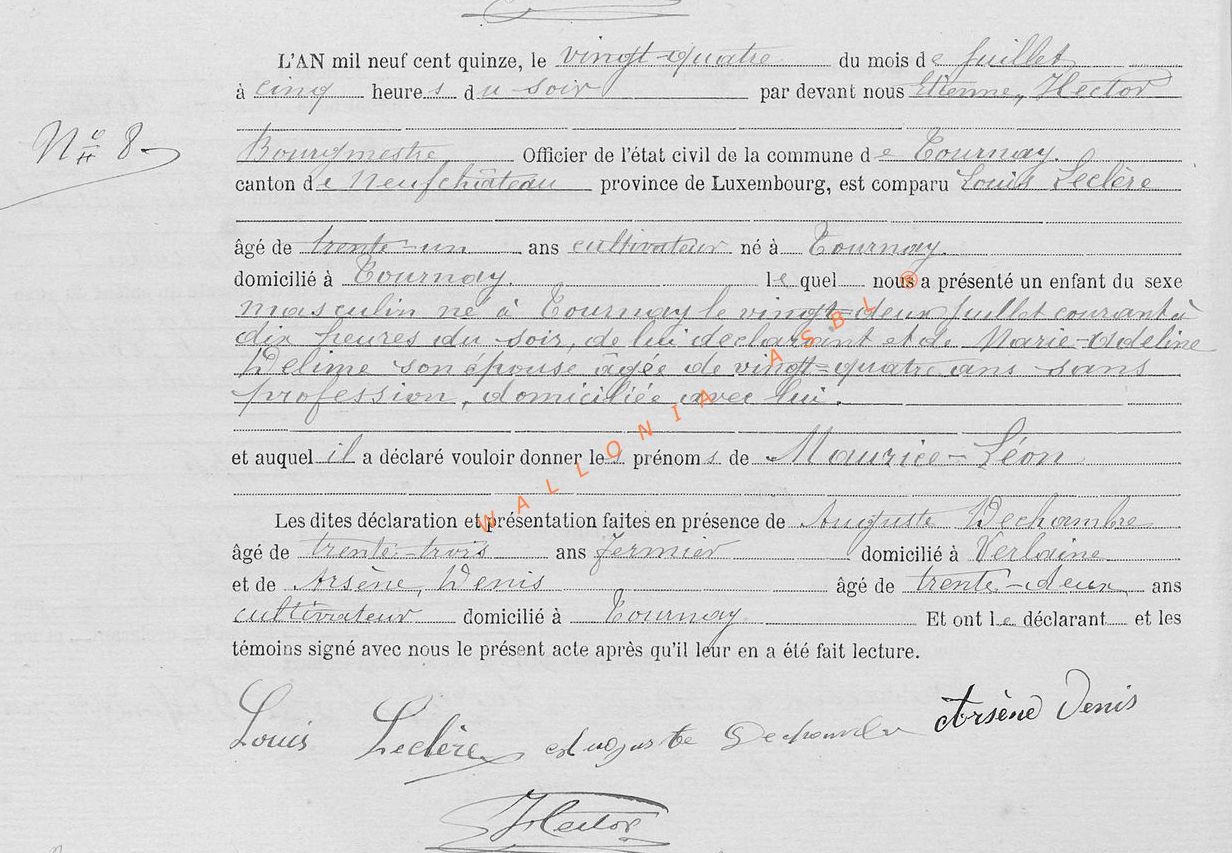 L'AN mil neuf cent quinze, le vingt-quatre du mois de Juillet
à cinq heures du soir par devant nous Etienne, Hector
N° 8
Bourgmestre Officier de l'état civil de la commune de Tournay.
canton de Neufchâteau province de Luxembourg, est comparu Louis Leclère
âgé de trente-un ans cultivateur né à Tournay.
domicilié à Tournay. lequel nous a présenté un enfant du sexe
masculin né à Tournay le vingt-deux Juillet courant à
dix heures du soir, de lui déclarant et de Marie-Adeline
Delime son épouse âgée de vingt-quatre ans sans
profession, domiciliée avec lui.
et auquel il a déclaré vouloir donner les prénoms de Maurice-Léon
WALLONIA ASBL ®
Les dites déclaration et présentation faites en présence de Auguste Dechambre
âgé de trente-trois ans fermier domicilié à Verlaine
et de Arsène, Denis âgé de trente-deux ans
cultivateur domicilié à Tournay Et ont le déclarant et les
témoins signé avec nous le présent acte après qu'il leur en a été fait lecture.
Louis Leclère Auguste Dechambre Arsène Denis
Hector